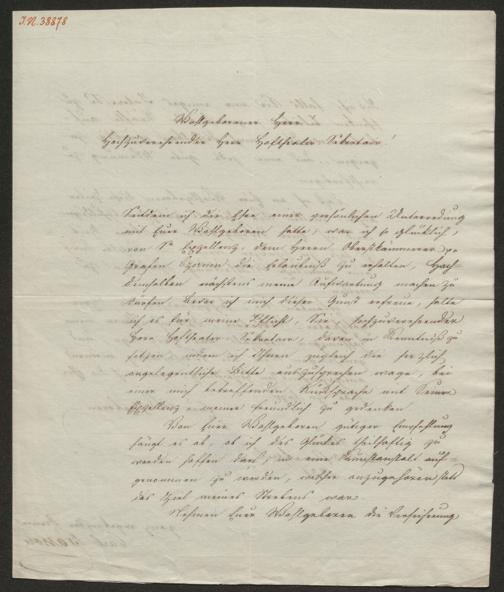 I.N. 38878
Wohlgeborener Herr
Hochzuverehrender Herr Hoftheater Sekretair!
Seitdem ich die Ehre einer persönlichen Unterredung
mit Euer Wohlgeboren hatte, war ich so glücklich,
von Sr Exzellenz, dem Herrn Oberstkämmerer
Grafen Czernin die Erlaubniß zu erhalten, Hoch
demselben nächstens meine Aufwartung machen zu
dürfen. Bevor ich mich dieser Gunst erfreue, halte
ich es für meine Pflicht, Sie, hochzuverehrender
Herr Hoftheater Sekretair, davon in Kenntniß zu
setzen indem ich Ihnen zugleich die herzlich
angelegentliche Bitte auszusprechen wage, bei
einer mich betreffenden Rücksprache mit Seiner
Exzellenz meiner freundlich zu gedenken.
Von Euer Wohlgeboren gütiger Empfehlung
hängt es ab, ob ich des Glückes theilhaftig zu
werden hoffen darf, in eine Kunstanstalt auf-
genommen zu werden, welcher anzugehören stets
das Ziel meines Strebens war.
Nehmen Euer Wohlgeboren die Versicherung